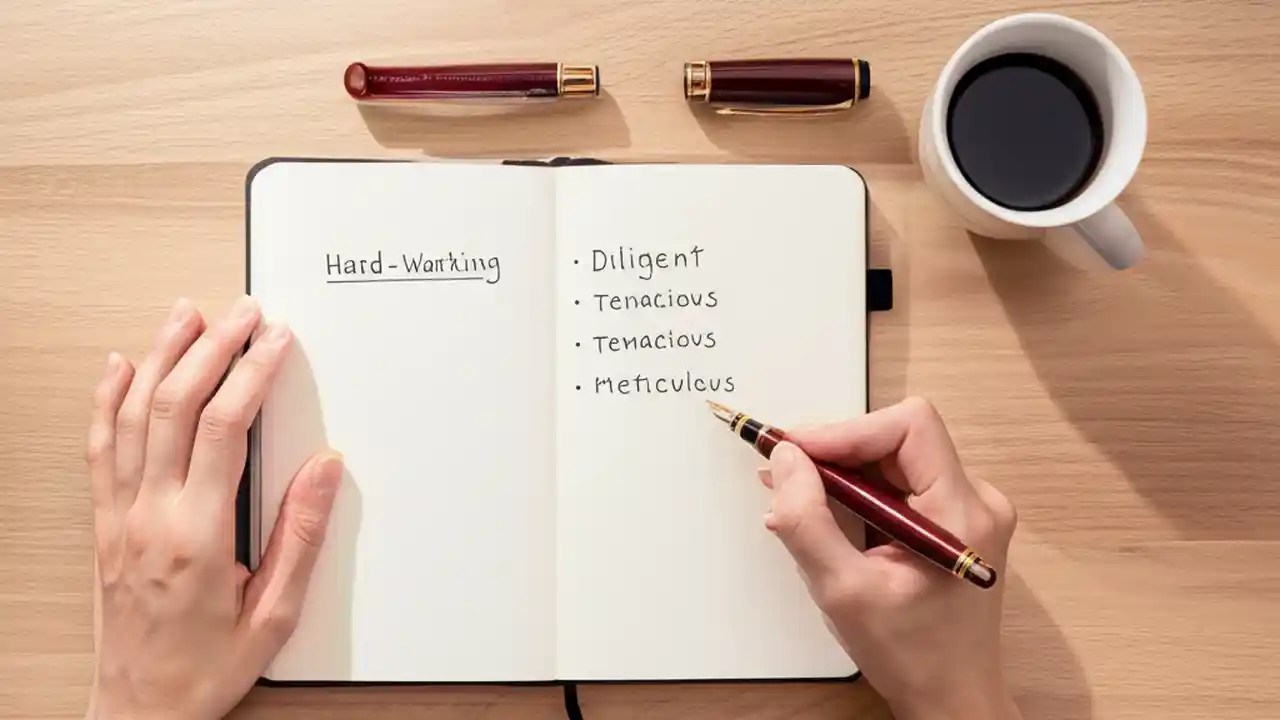 Hard-Working
• Diligent
• Tenacious
• Tenacious
• Meticulous